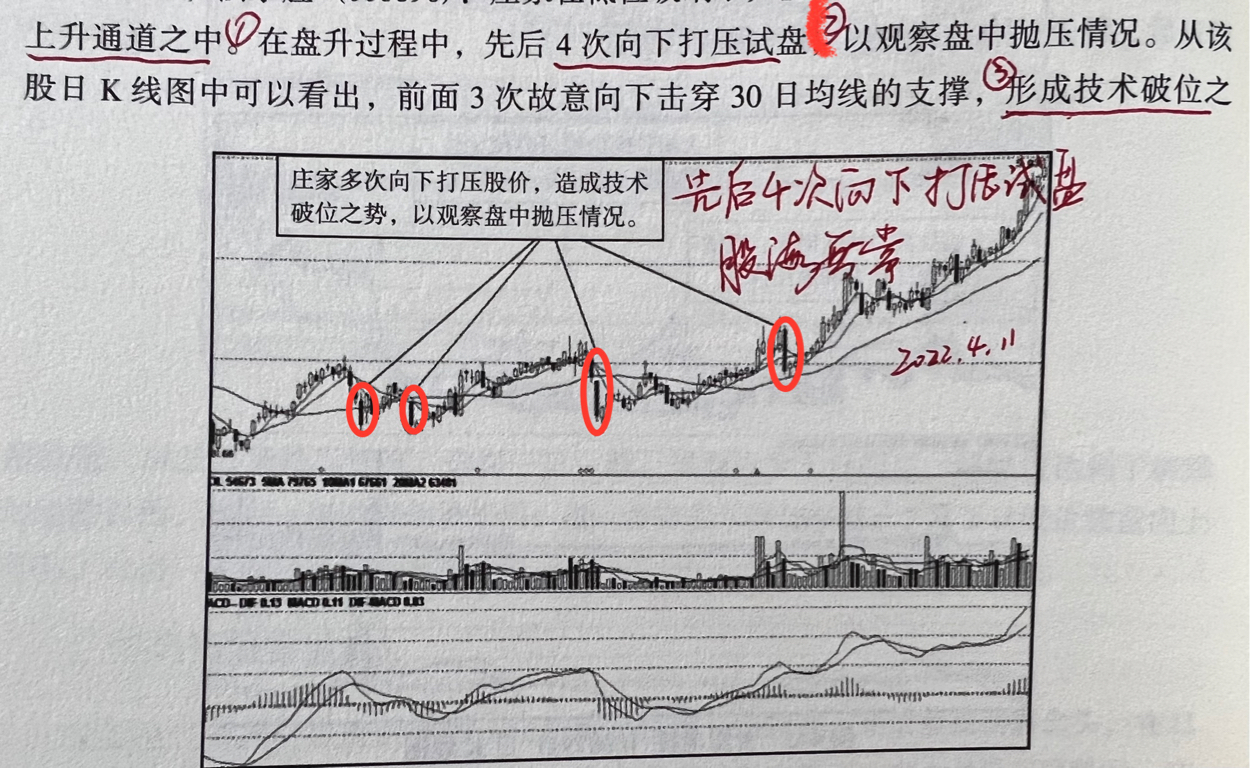 上升通道之中。①在盘升过程中，先后 4 次向下打压试盘②以观察盘中抛压情况。从该
股日 K 线图中可以看出，前面 3 次故意向下击穿 30 日均线的支撑，③形成技术破位之
庄家多次向下打压股价，造成技术
破位之势，以观察盘中抛压情况。
先后4次向下打压试盘
股海无常
2022.4.11
OL 54673 5MA 79765 10MA1 67661 20MA2 63481
ACD-DIF 0.13 MACD 0.11 DIF-MACD 0.03